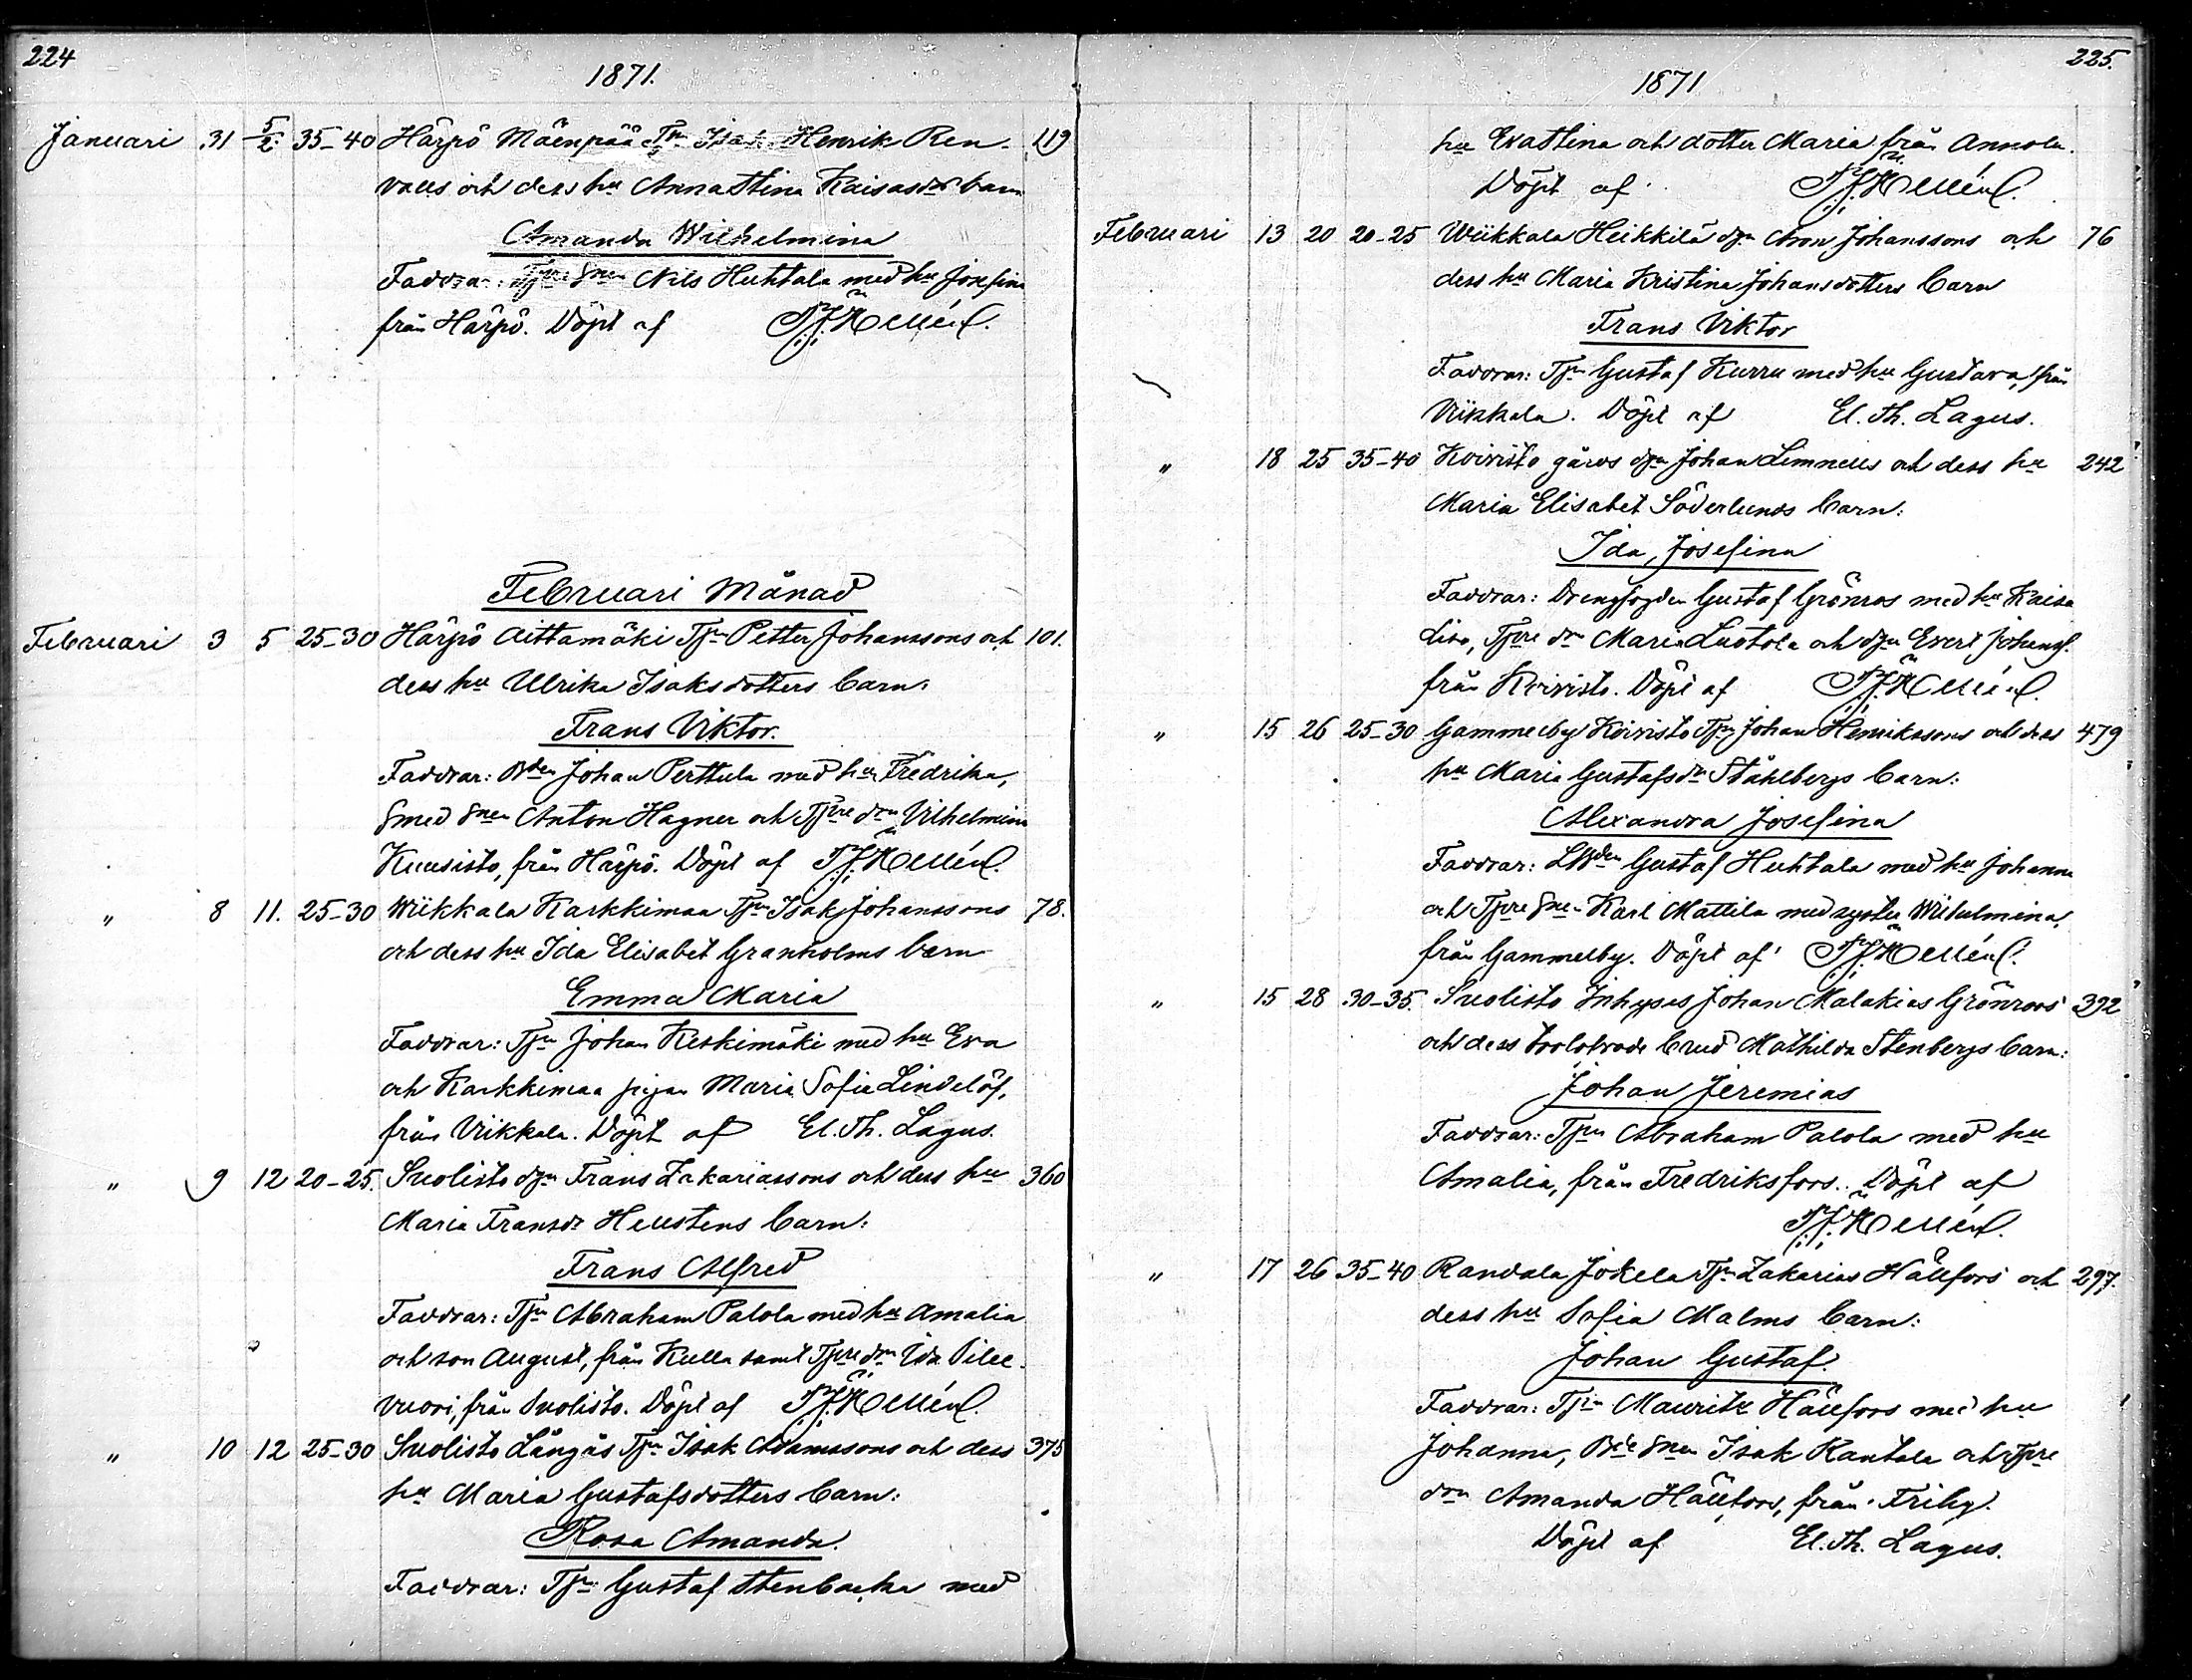 224
1871.
Januari 31 5/2 35-40 Härpö Mäenpää Tpn Isak Henrik Ren- 119
valls och dess hu Anna Stina Kaisasdr barn
Amanda Wilhelmina
Faddrar: Tpre Snen Nils Huhtala med hu Josefina
från Härpö. Döpt af
Februari Månad
Februari 3 5 25-30 Härpö Aittamäki Tpn Petter Johanssons och 101.
dess hu Ulrika Isaksdotters barn:
Frans Viktor.
Faddrar: Bden Johan Perttula med hu Fredrika,
Smed Snen Anton Hagner och Tpre drn Vilhelmina
Kuusisto, från Härpö. Döpt af
" 8 11. 25-30 Wiikkala Karkkimaa Tpn Isak Johanssons 78.
och dess hu Ida Elisabet Granholms barn
Emma Maria
Faddrar: Tpn Johan Keskimäki med hu Eva
och Karkkimaa pigan Maria Sofia Lindelöf,
från Viikkala. Döpt af El. Th. Lagus.
" 9 12 20-25. Suolisto dgn Frans Zakariassons och dess hu 360
Maria Fransdr Hellstens barn:
Frans Alfred
Faddrar: Tpn Abraham Palola med hu Amalia
och son August, från Kulla samt Tpre drn Ida Pile-
vuori, från Suolisto. Döpt af
" 10 12 25-30 Suolisto Långäs Tpn Isak Adamssons och dess 375
hu Maria Gustafsdotters barn:
Rosa Amanda.
Faddrar: Tpn Gustaf Stenbacka med
225.
1871
hu Eva Stina och dotter Maria från Annola.
Döpt af
Februari 13 20 20-25 Wiikkala Heikkilä dgn Aron Johanssons och 76
dess hu Maria Kristina Johansdotters barn
Frans Viktor
Faddrar: Tpn Gustaf Kurru med hu Gustava, från
Viikkala. Döpt af El. Th. Lagus.
" 18 25 35-40 Koivisto gårds dgn Johan Limnells och dess hu 242
Maria Elisabet Söderlunds barn:
Ida Josefina
Faddrar: Drengfogden Gustaf Grönros med hu Kaisa
Lisa, Tpre drn Maria Luotola och dgn Evert Johanss.
från Koivisto. Döpt af
" 15 26 25-30 Gammelby Koivisto Tpn Johan Henrikssons och dess 479
hu Maria Gustafsdr Ståhlbergs barn:
Alexandra Josefina
Faddrar: LBden Gustaf Huhtala med hu Johanna
och Tpre Snen Karl Mattila med syster Wilhelmina,
från Gammelby. Döpt af
" 15 28 30-35. Suolisto Inhyses Johan Malakias Grönroos 392
och dess trolofvade brud Mathilda Stenbergs barn:
Johan Jeremias
Faddrar: Tpn Abraham Palola med hu
Amalia, från Fredriksfors. Döpt af
" 17 26 35-40 Randala Jokela Tpn Zakarias Hällfors och 297.
dess hu Sofia Malms barn:
Johan Gustaf.
Faddrar: Tpn Mauritz Hällfors med hu
Johanna, Bde Snen Isak Rantala och Tpre
drn Amanda Hällfors, från Friby.
Döpt af El. Th. Lagus.